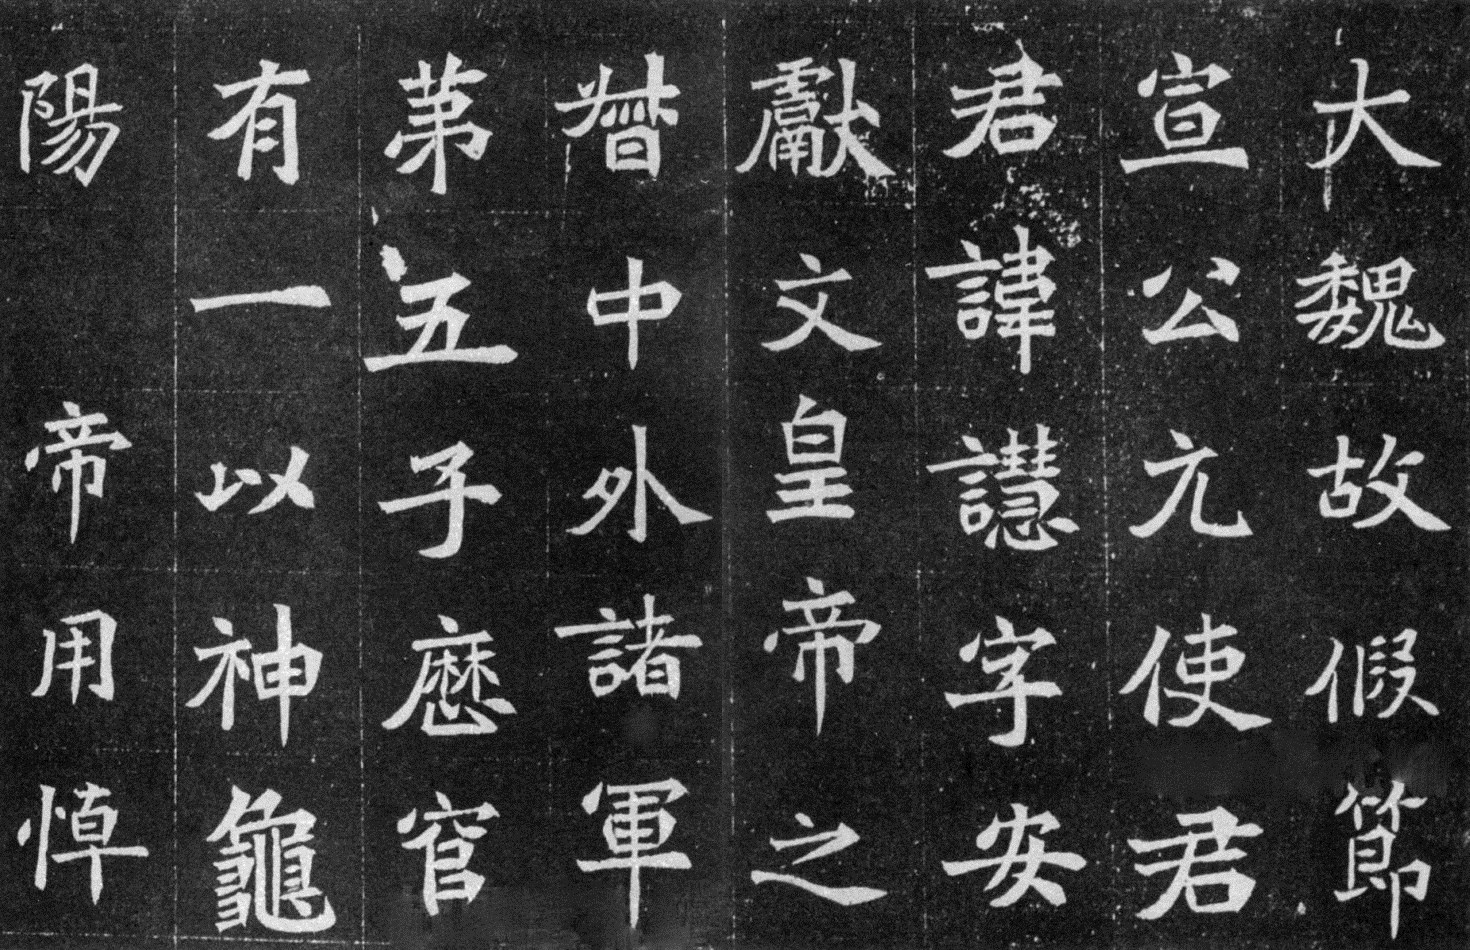 大魏故假節
宣公元使君
君諱譿字安
獻文皇帝之
督中外諸軍
苐五子歷官
有一以神龜
陽 帝用悼